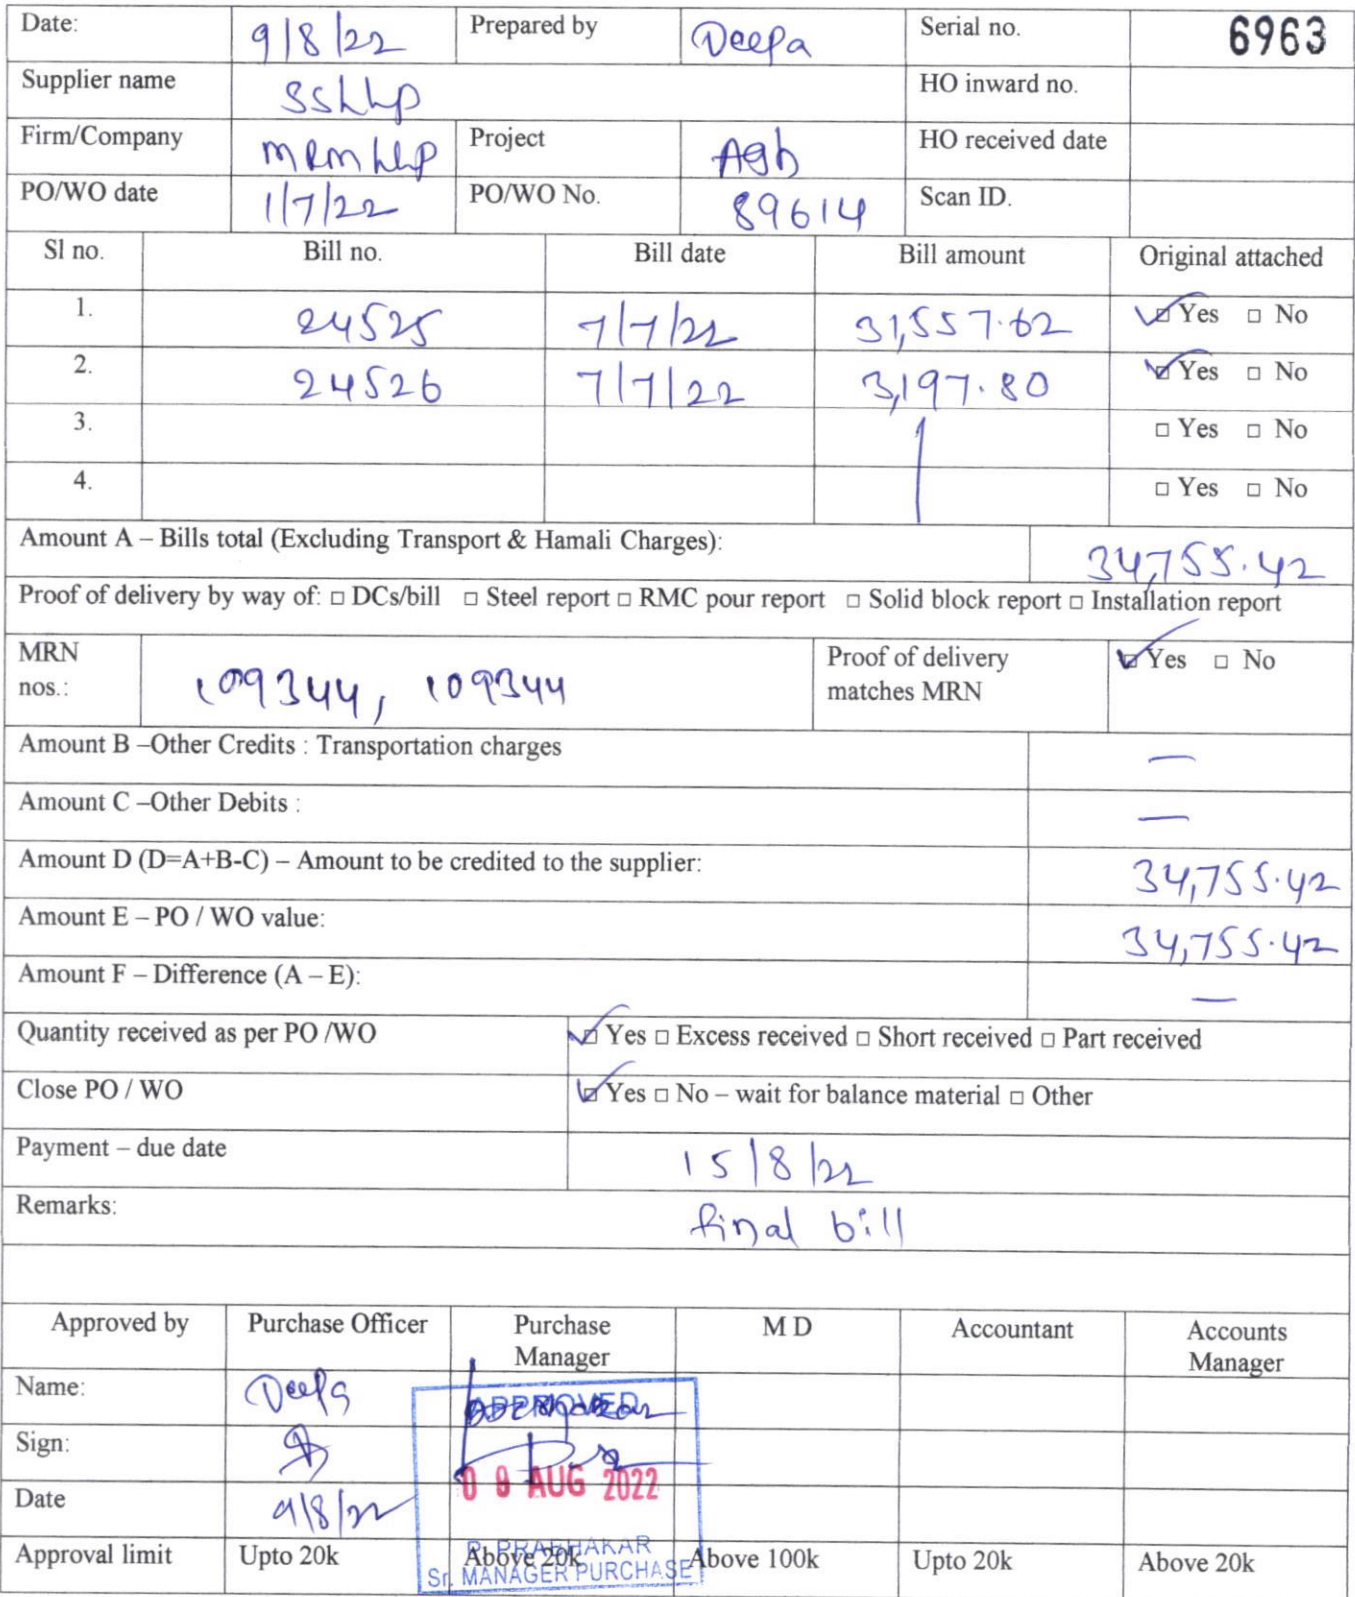 Date: 9/8/22 Prepared by Deepa Serial no. 6963
Supplier name SSLLP HO inward no.
Firm/Company MRM LLP Project AGH HO received date
PO/WO date 1/7/22 PO/WO No. 89614 Scan ID.
Sl no. Bill no. Bill date Bill amount Original attached
1. 24525 7/7/22 31,557.62 ☑ Yes □ No
2. 24526 7/7/22 3,197.80 ☑ Yes □ No
3. □ Yes □ No
4. □ Yes □ No
Amount A – Bills total (Excluding Transport & Hamali Charges): 34,755.42
Proof of delivery by way of: □ DCs/bill □ Steel report □ RMC pour report □ Solid block report □ Installation report
MRN nos.: 109344, 109344 Proof of delivery matches MRN ☑ Yes □ No
Amount B –Other Credits : Transportation charges —
Amount C –Other Debits : —
Amount D (D=A+B-C) – Amount to be credited to the supplier: 34,755.42
Amount E – PO / WO value: 34,755.42
Amount F – Difference (A – E): —
Quantity received as per PO /WO ☑ Yes □ Excess received □ Short received □ Part received
Close PO / WO ☑ Yes □ No – wait for balance material □ Other
Payment – due date 15/8/22
Remarks: final bill
Approved by Purchase Officer Purchase Manager M D Accountant Accounts Manager
Name: Deepa APPROVED
Sign:
Date 9/8/22 09 AUG 2022
P. PRABHAKAR
Sr. MANAGER PURCHASE
Approval limit Upto 20k Above 20k Above 100k Upto 20k Above 20k